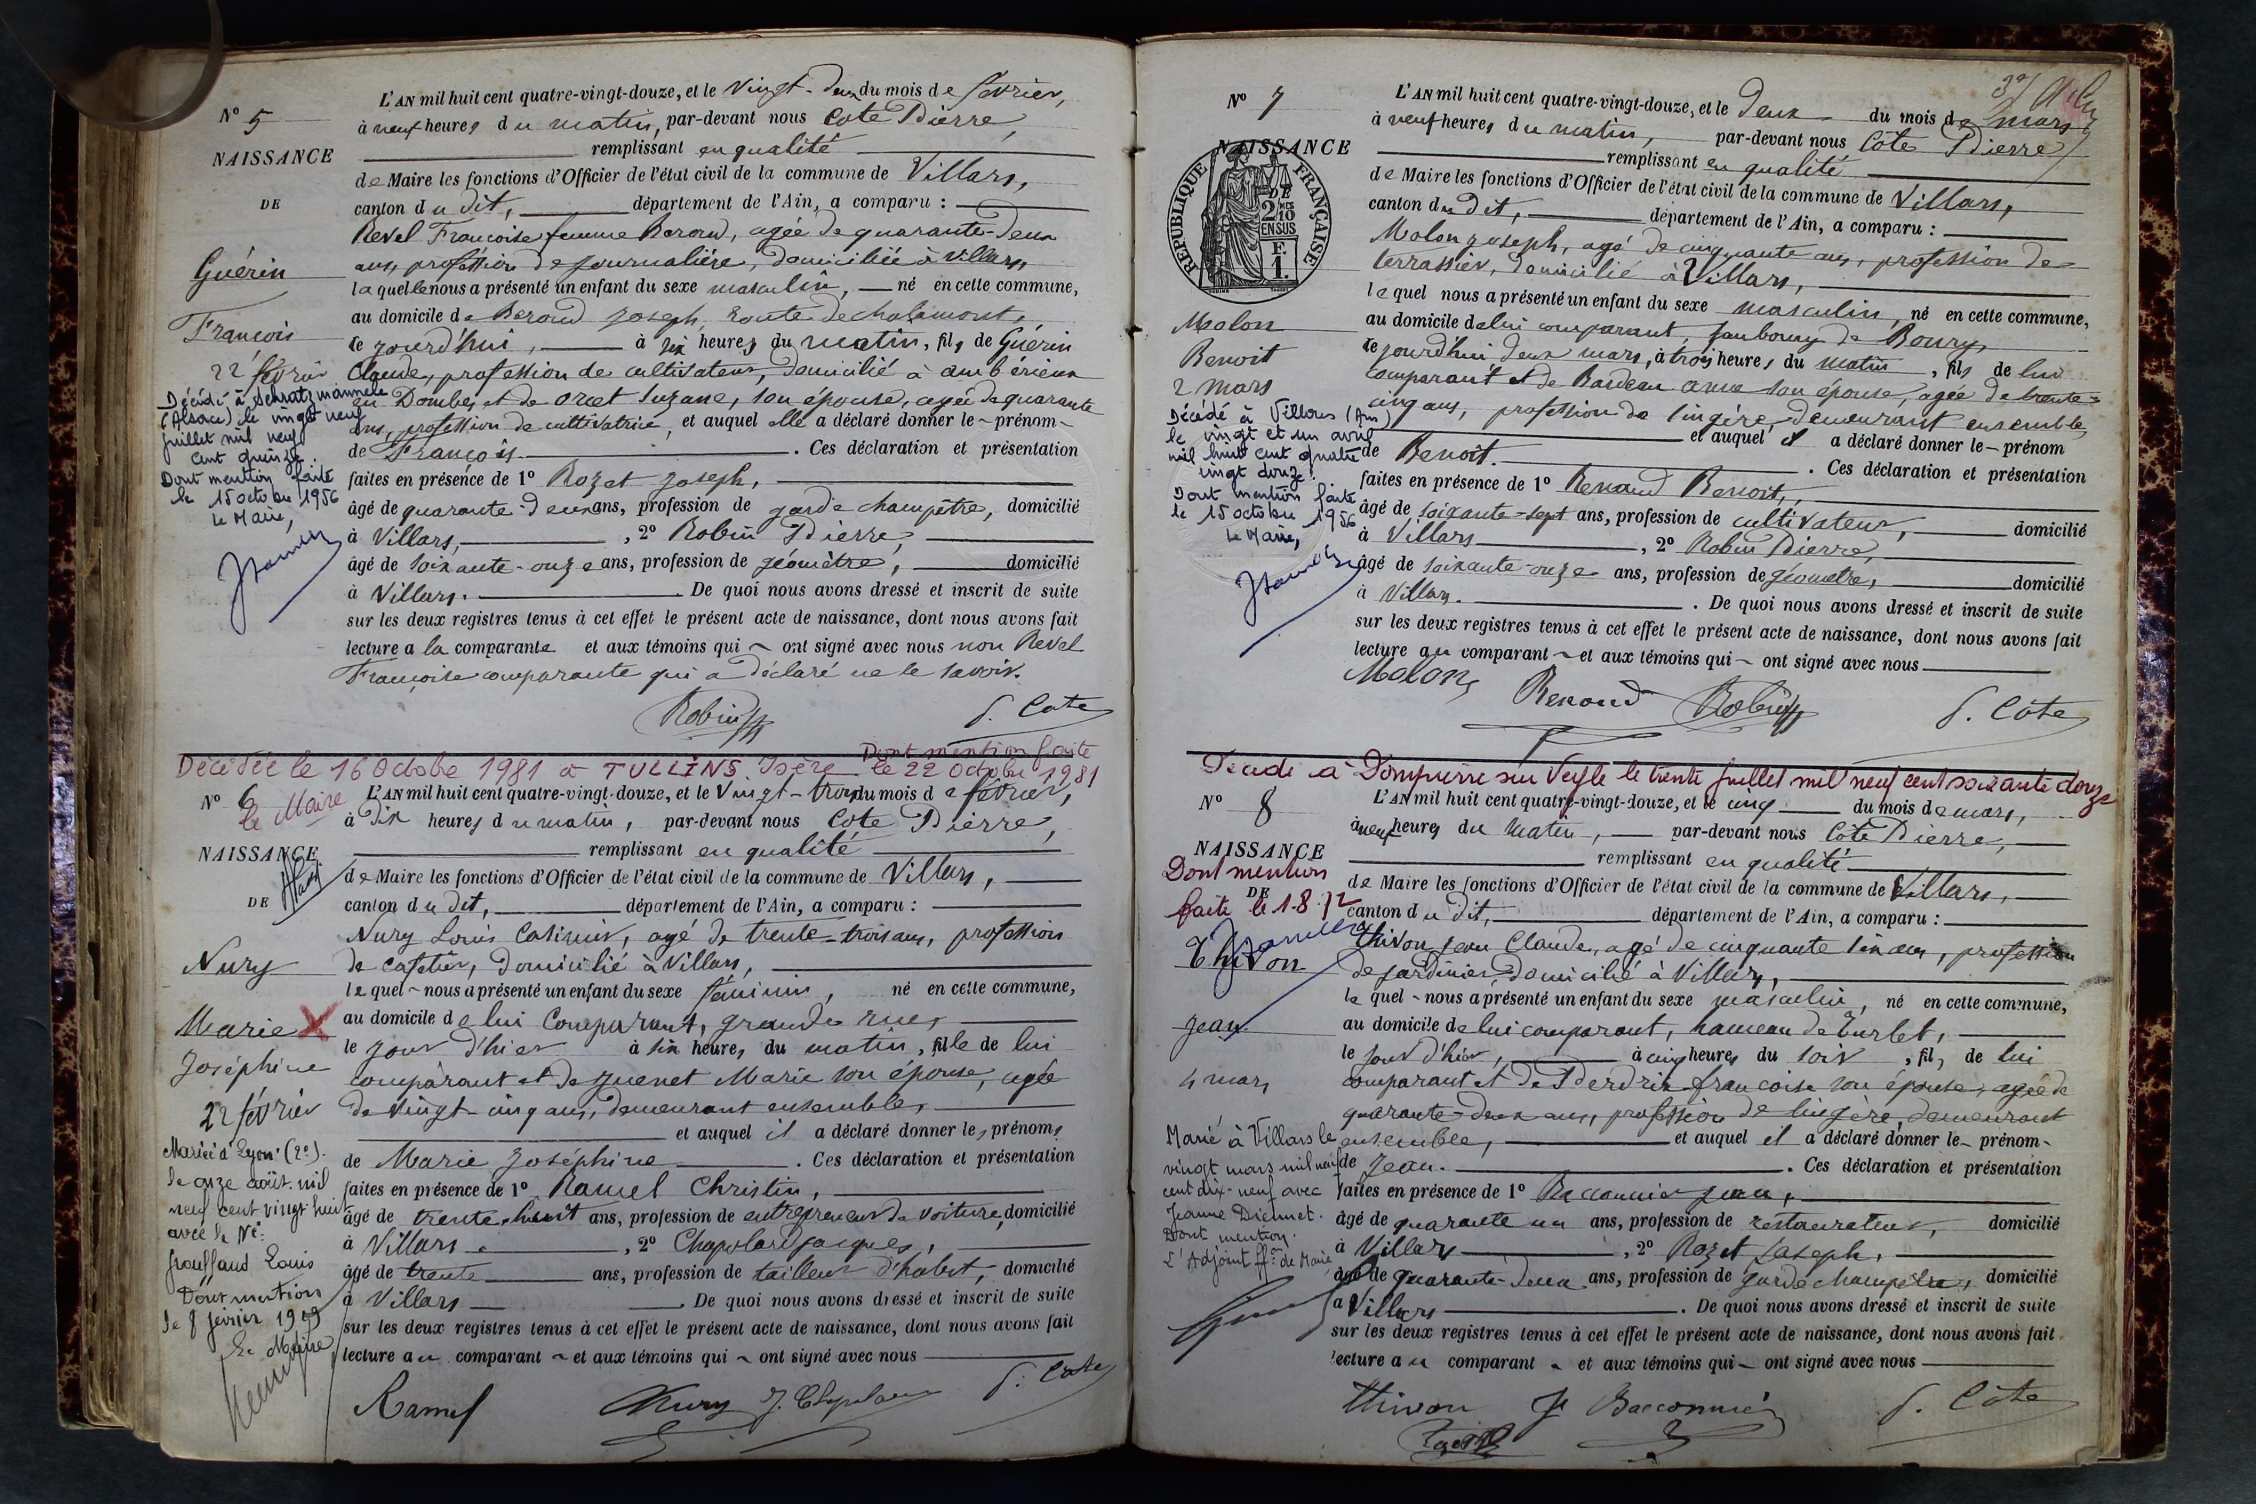 N° 5
NAISSANCE
DE
Guérin
François
22 février
Décédé à Schratzmannele
(Alsace) le vingt neuf
juillet mil neuf
cent quinze.
Dont mention faite
le 15 octobre 1956
Le Maire,
L'AN mil huit cent quatre-vingt-douze, et le vingt-deux du mois de février,
à neuf heures du matin, par-devant nous Cote Pierre,
remplissant en qualité
de Maire les fonctions d'Officier de l'état civil de la commune de Villars,
canton du dit, département de l'Ain, a comparu :
Revel Françoise femme Beroud, agée de quarante-deux
ans, profession de journalière, domiciliée à Villars,
laquelle nous a présenté un enfant du sexe masculin, né en cette commune,
au domicile de Beroud Joseph, route de chalamont,
ce jourd'hui, à six heures du matin, fils de Guérin
Claude, profession de cultivateur, domicilié à ambérieux
en Dombes, et de Orcet Suzane, son épouse, agée de quarante
ans, profession de cultivatrice, et auquel elle a déclaré donner le prénom
de François. Ces déclaration et présentation
faites en présence de 1° Rozet Joseph,
âgé de quarante-deux ans, profession de garde champêtre, domicilié
à Villars, 2° Robin Pierre,
âgé de soixante-onze ans, profession de géomètre, domicilié
à Villars. De quoi nous avons dressé et inscrit de suite
sur les deux registres tenus à cet effet le présent acte de naissance, dont nous avons fait
lecture a la comparante et aux témoins qui ont signé avec nous non Revel
Françoise comparante qui a déclaré ne le savoir.
Robin P. Cote
Dont mention faite
Décédée le 16 Octobre 1981 à TULLINS Isère le 22 octobre 1981
Le Maire
N° 6
NAISSANCE
DE
Nury
Marie X
Joséphine
22 février
Mariée à Lyon (2e)
le onze août mil
neuf cent vingt huit
avec le Né:
Louis
Dont mention
le 8 février 1929
Le Maire
L'AN mil huit cent quatre-vingt-douze, et le vingt-trois du mois de février,
à dix heures du matin, par-devant nous Cote Pierre,
remplissant en qualité
de Maire les fonctions d'Officier de l'état civil de la commune de Villars,
canton du dit, département de l'Ain, a comparu :
Nury Louis Casimir, agé de trente-trois ans, profession
de cafetier, domicilié à Villars,
lequel nous a présenté un enfant du sexe féminin, né en cette commune,
au domicile de lui comparant, grande rue,
le jour d'hier à six heures du matin, fille de lui
comparant et de Guenet Marie son épouse, agée
de vingt-cinq ans, demeurant ensemble,
et auquel il a déclaré donner les prénoms
de Marie Joséphine. Ces déclaration et présentation
faites en présence de 1° Ramel Christin,
âgé de trente-huit ans, profession de entrepreneur de voiture, domicilié
à Villars, 2° Chapolard Jacques,
âgé de trente ans, profession de tailleur d'habit, domicilié
à Villars. De quoi nous avons dressé et inscrit de suite
sur les deux registres tenus à cet effet le présent acte de naissance, dont nous avons fait
lecture au comparant et aux témoins qui ont signé avec nous
Ramel Nury J. Chapolard P. Cote
N° 7
NAISSANCE
RÉPUBLIQUE FRANÇAISE
2/10 EN SUS
F. 1.
Molon
Benoit
2 mars
Décédé à Villars (Ain)
le vingt et un avril
mil huit cent quatre
vingt douze.
Dont mention faite
le 15 octobre 1956
Le Maire,
L'AN mil huit cent quatre-vingt-douze, et le deux du mois de mars
à neuf heures du matin, par-devant nous Côte Pierre
remplissant en qualité
de Maire les fonctions d'Officier de l'état civil de la commune de Villars,
canton du dit, département de l'Ain, a comparu :
Molon Joseph, agé de cinquante ans, profession de
terrassier, domicilié à Villars,
lequel nous a présenté un enfant du sexe masculin, né en cette commune,
au domicile de lui comparant, faubourg de Bourg,
ce jourd'hui deux mars, à trois heures du matin, fils de lui
comparant et de Bardeau anne son épouse, agée de trente-
cinq ans, profession de lingère, demeurant ensemble,
et auquel il a déclaré donner le prénom
de Benoît. Ces déclaration et présentation
faites en présence de 1° Renoud Benoit,
âgé de soixante-sept ans, profession de cultivateur, domicilié
à Villars, 2° Robin Pierre,
âgé de soixante-onze ans, profession de géomètre, domicilié
à Villars. De quoi nous avons dressé et inscrit de suite
sur les deux registres tenus à cet effet le présent acte de naissance, dont nous avons fait
lecture au comparant et aux témoins qui ont signé avec nous
Molon Renoud Robin P. Côte
Décédé à Dompierre sur Veyle le trente juillet mil neuf cent soixante douze
N° 8
NAISSANCE
Dont mention
DE
faite le 1-8-72
Thivon
Jean
4 mars
Marié à Villars le
vingt mars mil neuf
cent dix-neuf avec
Jeanne
Dont mention.
L'Adjoint ff.on de Maire
L'AN mil huit cent quatre-vingt-douze, et le cinq du mois de mars,
à neuf heures du matin, par-devant nous Côte Pierre,
remplissant en qualité
de Maire les fonctions d'Officier de l'état civil de la commune de Villars,
canton du dit, département de l'Ain, a comparu :
Thivon Jean Claude, agé de cinquante six ans, profession
de jardinier, domicilié à Villars,
lequel nous a présenté un enfant du sexe masculin, né en cette commune,
au domicile de lui comparant, hameau de Turlet,
le jour d'hier, à cinq heures du soir, fils de lui
comparant et de Perdrix françoise son épouse, agée de
quarante-deux ans, profession de lingère, demeurant
ensemble, et auquel il a déclaré donner le prénom
de Jean. Ces déclaration et présentation
faites en présence de 1° Bacconnier Jean,
âgé de quarante un ans, profession de restaurateur, domicilié
à Villars, 2° Rozet Joseph,
âgé de quarante-deux ans, profession de garde champêtre, domicilié
à Villars. De quoi nous avons dressé et inscrit de suite
sur les deux registres tenus à cet effet le présent acte de naissance, dont nous avons fait
lecture au comparant et aux témoins qui ont signé avec nous
Thivon J. Bacconnier P. Côte
Rozet